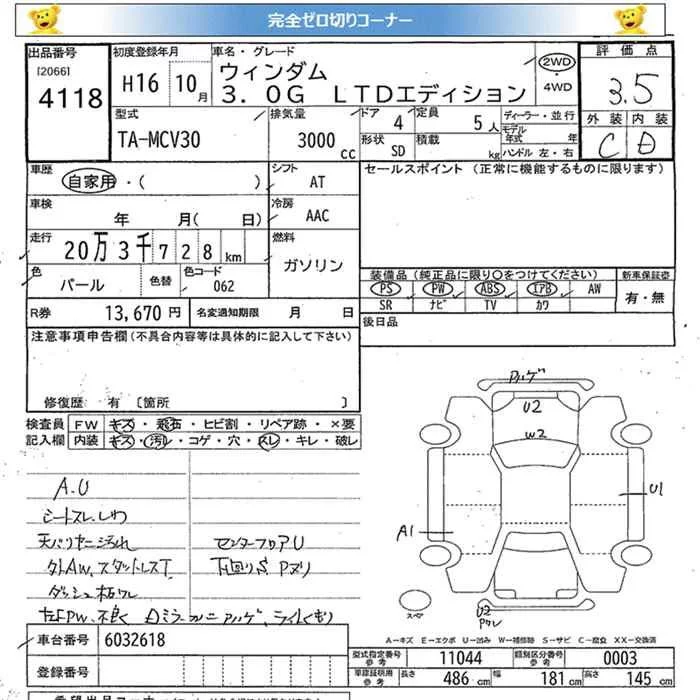 完全ゼロ切りコーナー
出品番号
[2066]
4118
初度登録年月
H16 10月
車名・グレード
ウィンダム
3.0G LTDエディション
2WD・4WD
評価点
3.5
外装 内装
C D
型式
TA-MCV30
排気量
3000cc
ドア
4
定員
5人
形状
SD
積載
kg
ディーラー・並行
モデル年式 年
ハンドル 左・右
車歴
自家用・( )
シフト
AT
車検
年 月( 日)
冷房
AAC
走行
20万3千728km
燃料
ガソリン
色
パール
色替
色コード
062
R券 13,670円
名変通知期限 月 日
セールスポイント (正常に機能するものに限ります)
装備品(純正品に限り〇をつけてください)
PS PW ABS エアB AW
SR ナビ TV カワ
新車保証書
有・無
後日品
注意事項申告欄(不具合内容等は具体的に記入して下さい)
修復歴 有 [箇所 ]
検査員記入欄
FW キズ・飛石・ヒビ割・リペア跡・×要
内装 キズ・汚レ・コゲ・穴・スレ・キレ・破レ
A.U
シートスレ.しわ
天バリヤニ汚れ
外AW、スタットレスT
センターフロアU
下回りS Pヌリ
左FPW.不良
U2
W2
A1
U1
スペア
U2
A-キズ E-エクボ U-凹み W-補修跡 S-サビ C-腐食 XX-交換済
車台番号
6032618
登録番号
型式指定番号 参考
11044
類別区分番号 参考
0003
車庫証明用 参考
長さ 486 cm 幅 181 cm 高さ 145 cm